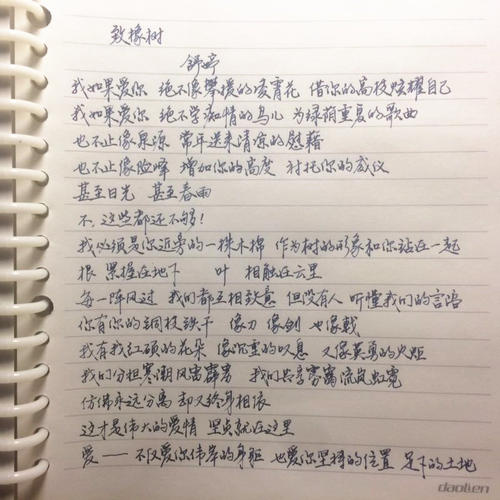 致橡树
舒婷
我如果爱你 绝不像攀援的凌霄花 借你的高枝炫耀自己
我如果爱你 绝不学痴情的鸟儿 为绿荫重复的歌曲
也不止像泉源 常年送来清凉的慰藉
也不止像险峰 增加你的高度 衬托你的威仪
甚至日光 甚至春雨
不,这些都还不够!
我必须是你近旁的一株木棉 作为树的形象和你站在一起
根 紧握在地下 叶 相触在云里
每一阵风过 我们都互相致意 但没有人 听懂我们的言语
你有你的铜枝铁干 像刀 像剑 也像戟
我有我红硕的花朵 像沉重的叹息 又像英勇的火炬
我们分担寒潮风雷霹雳 我们共享雾霭流岚虹霓
仿佛永远分离 却又终身相依
这才是伟大的爱情 坚贞就在这里
爱——不仅爱你伟岸的身躯 也爱你坚持的位置 足下的土地
daolien